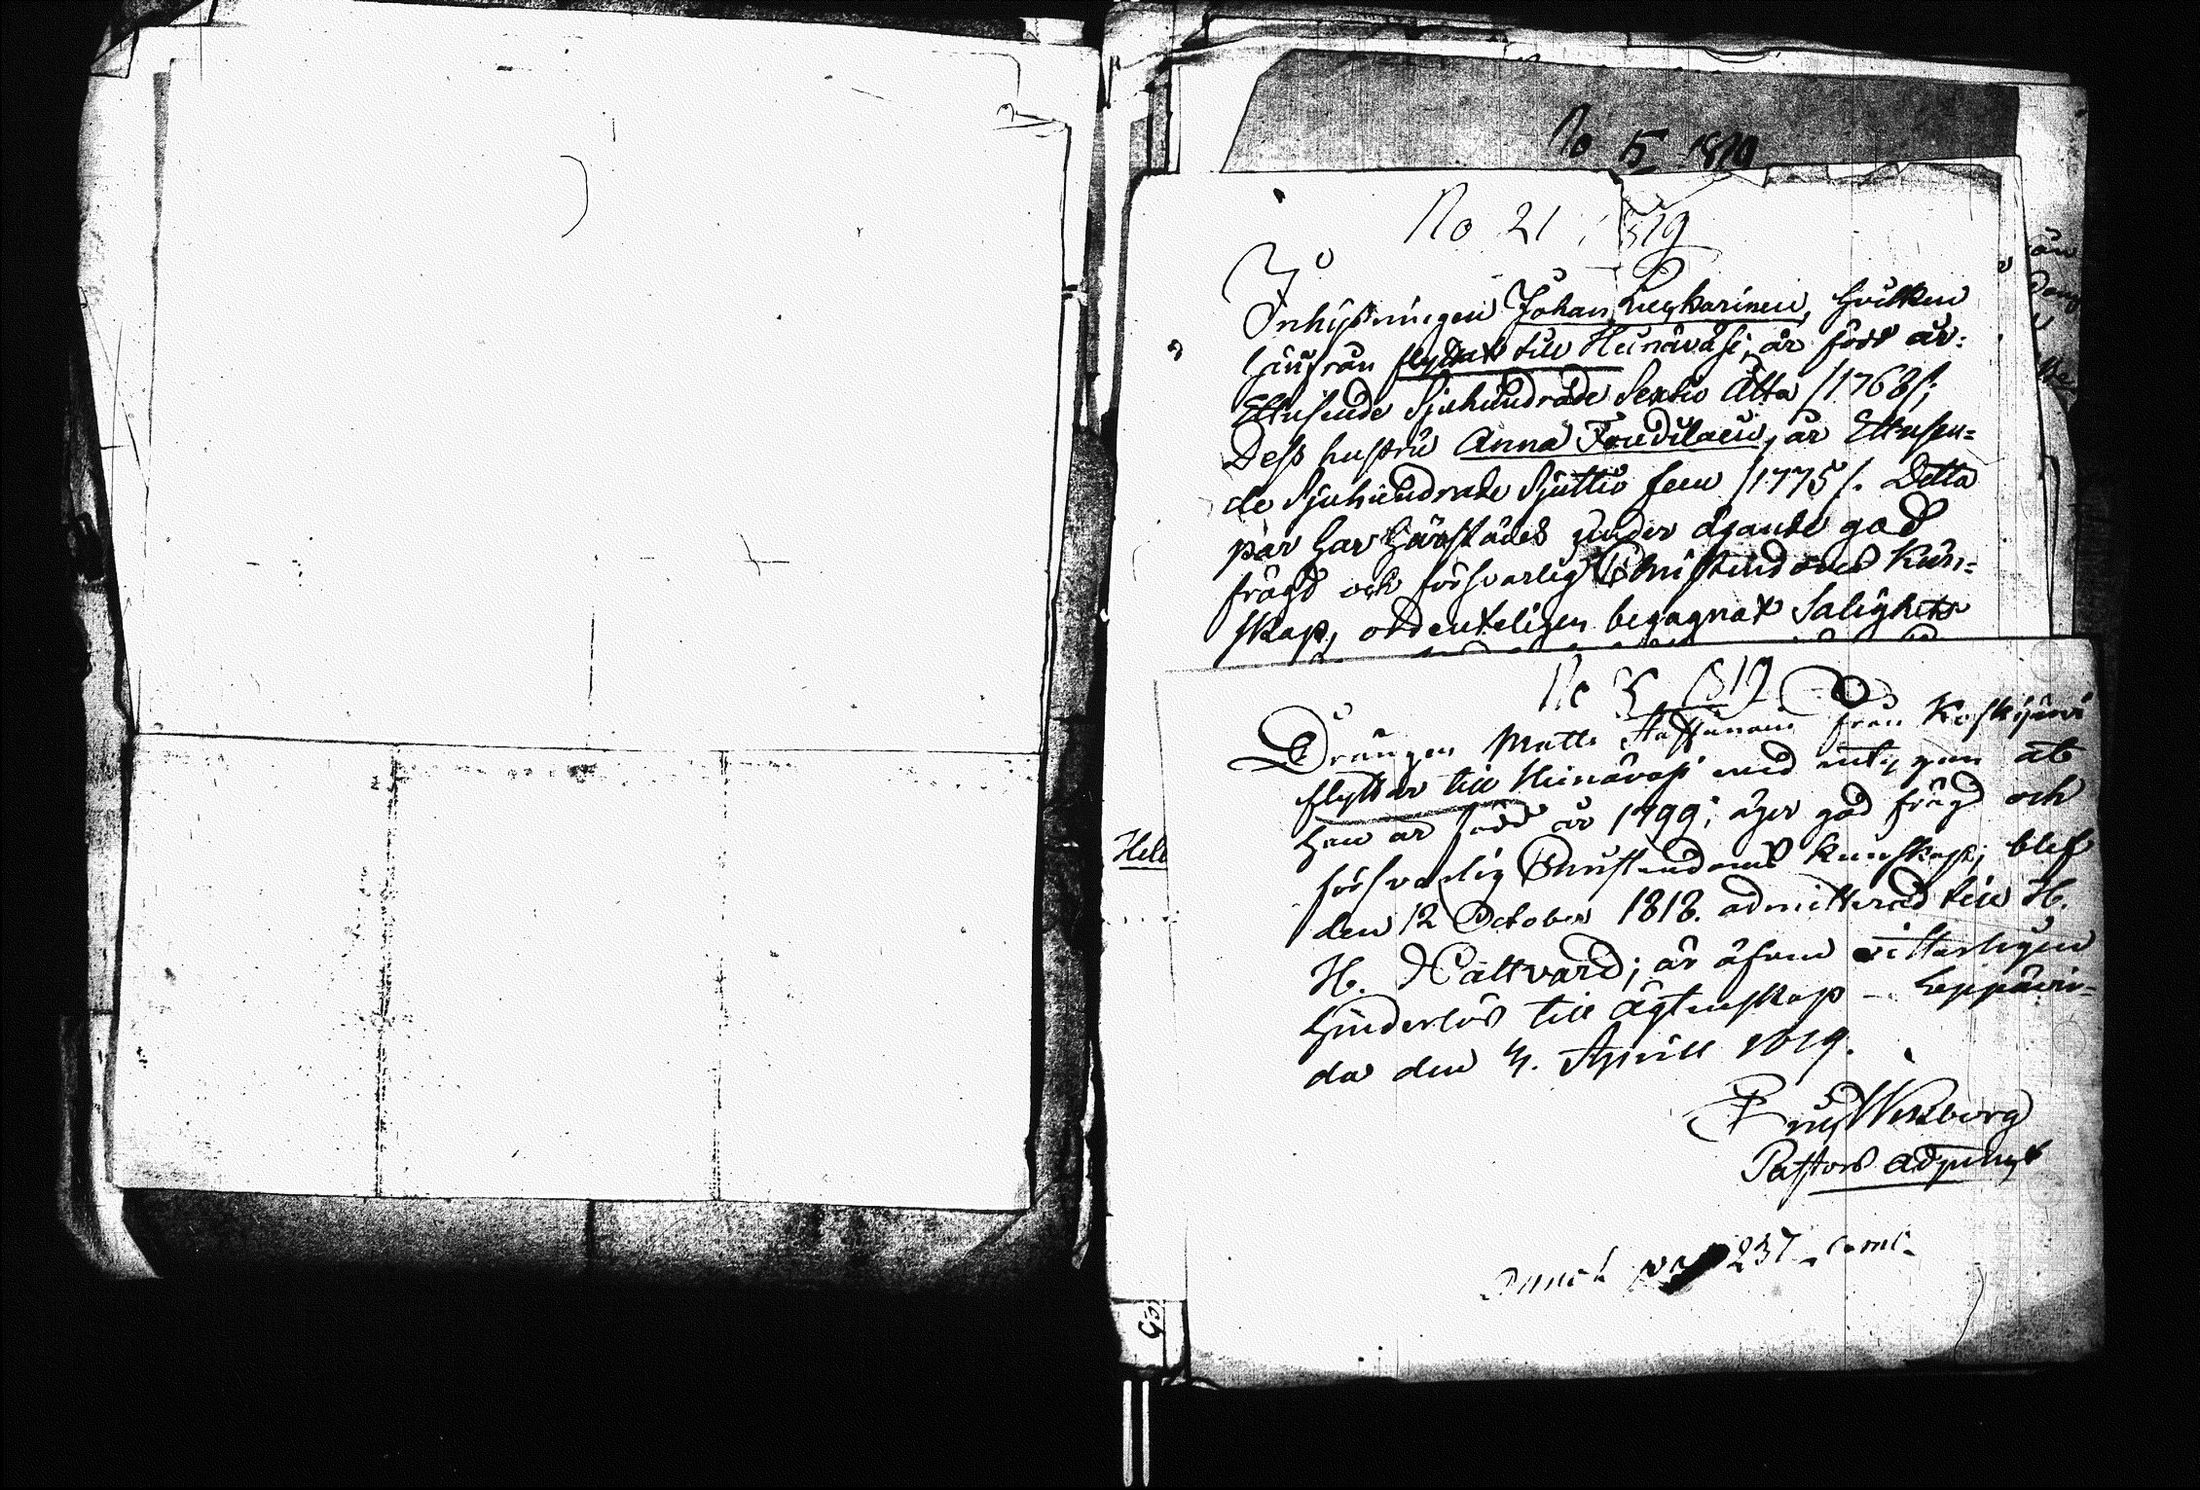 No 5 1819
No 21 1819
Inhysningen Johan hvilken
härifrån flyttat till Heinävesi, är född år
Ettusende Sjuhundrade Sextio Åtta /1768/;
Dess hustru Anna år Ettusen=
de Sjuhundrade Sjuttio fem /1775/. Detta
par har härstädes under ägande god
frägd och försvarlig Christendoms Kun=
skap, ordenteligen begagnat Salighets
No 5 1819
Drängen Matts från Koskijärvi
flyttar till Heinävesi med intygan at
han är född år 1799; äger god frägd och
försvarlig Christendoms kunskap; blef
den 12 October 1818. admitterad till H.
H. Nattvard; är äfven vitterligen
hinderlös till ägtenskap – Leppävir=
da den 4. Aprill 1819.
Pastors adjunct
237
Hell